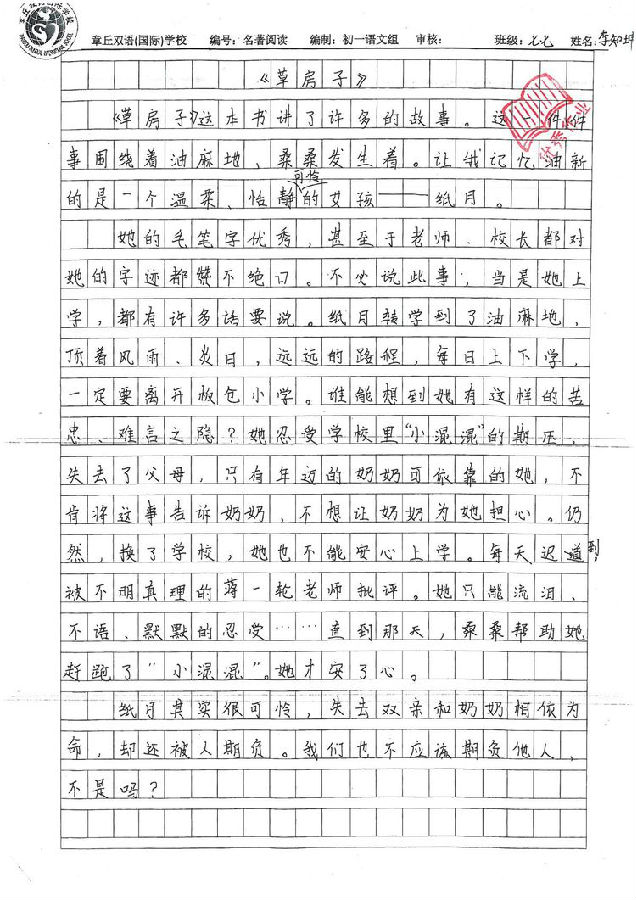 章丘双语(国际)学校 编号：名著阅读 编制：初一语文组 审核： 班级：七七 姓名：李知坤
《草房子》
《草房子》这本书讲了许多的故事。这一件件
事围绕着油麻地、桑桑发生着。让我记忆油新
可怜
的是一个温柔、恬静的女孩——纸月。
她的毛笔字优秀，甚至于老师、校长都对
她的字迹都赞不绝口。不必说此事，当是她上
学，都有许多话要说。纸月转学到了油麻地，
顶着风雨、炎日，远远的路程，每日上下学，
一定要离开板仓小学。谁能想到她有这样的苦
忠、难言之隐？她忍受学校里“小混混”的斯压、
失去了父母，只有年迈的奶奶可依靠的她，不
肯将这事告诉奶奶，不想让奶奶为她担心。仍
然，换了学校，她也不能安心上学。每天迟道到，
被不明真理的蒋一轮老师批评。她只能流泪、
不语、默默的忍受……直到那天，桑桑帮助她
赶跑了“小混混”。她才安了心。
纸月其实很可怜，失去双亲和奶奶相依为
命，却还被人期负。我们也不应该期负他人，
不是吗？